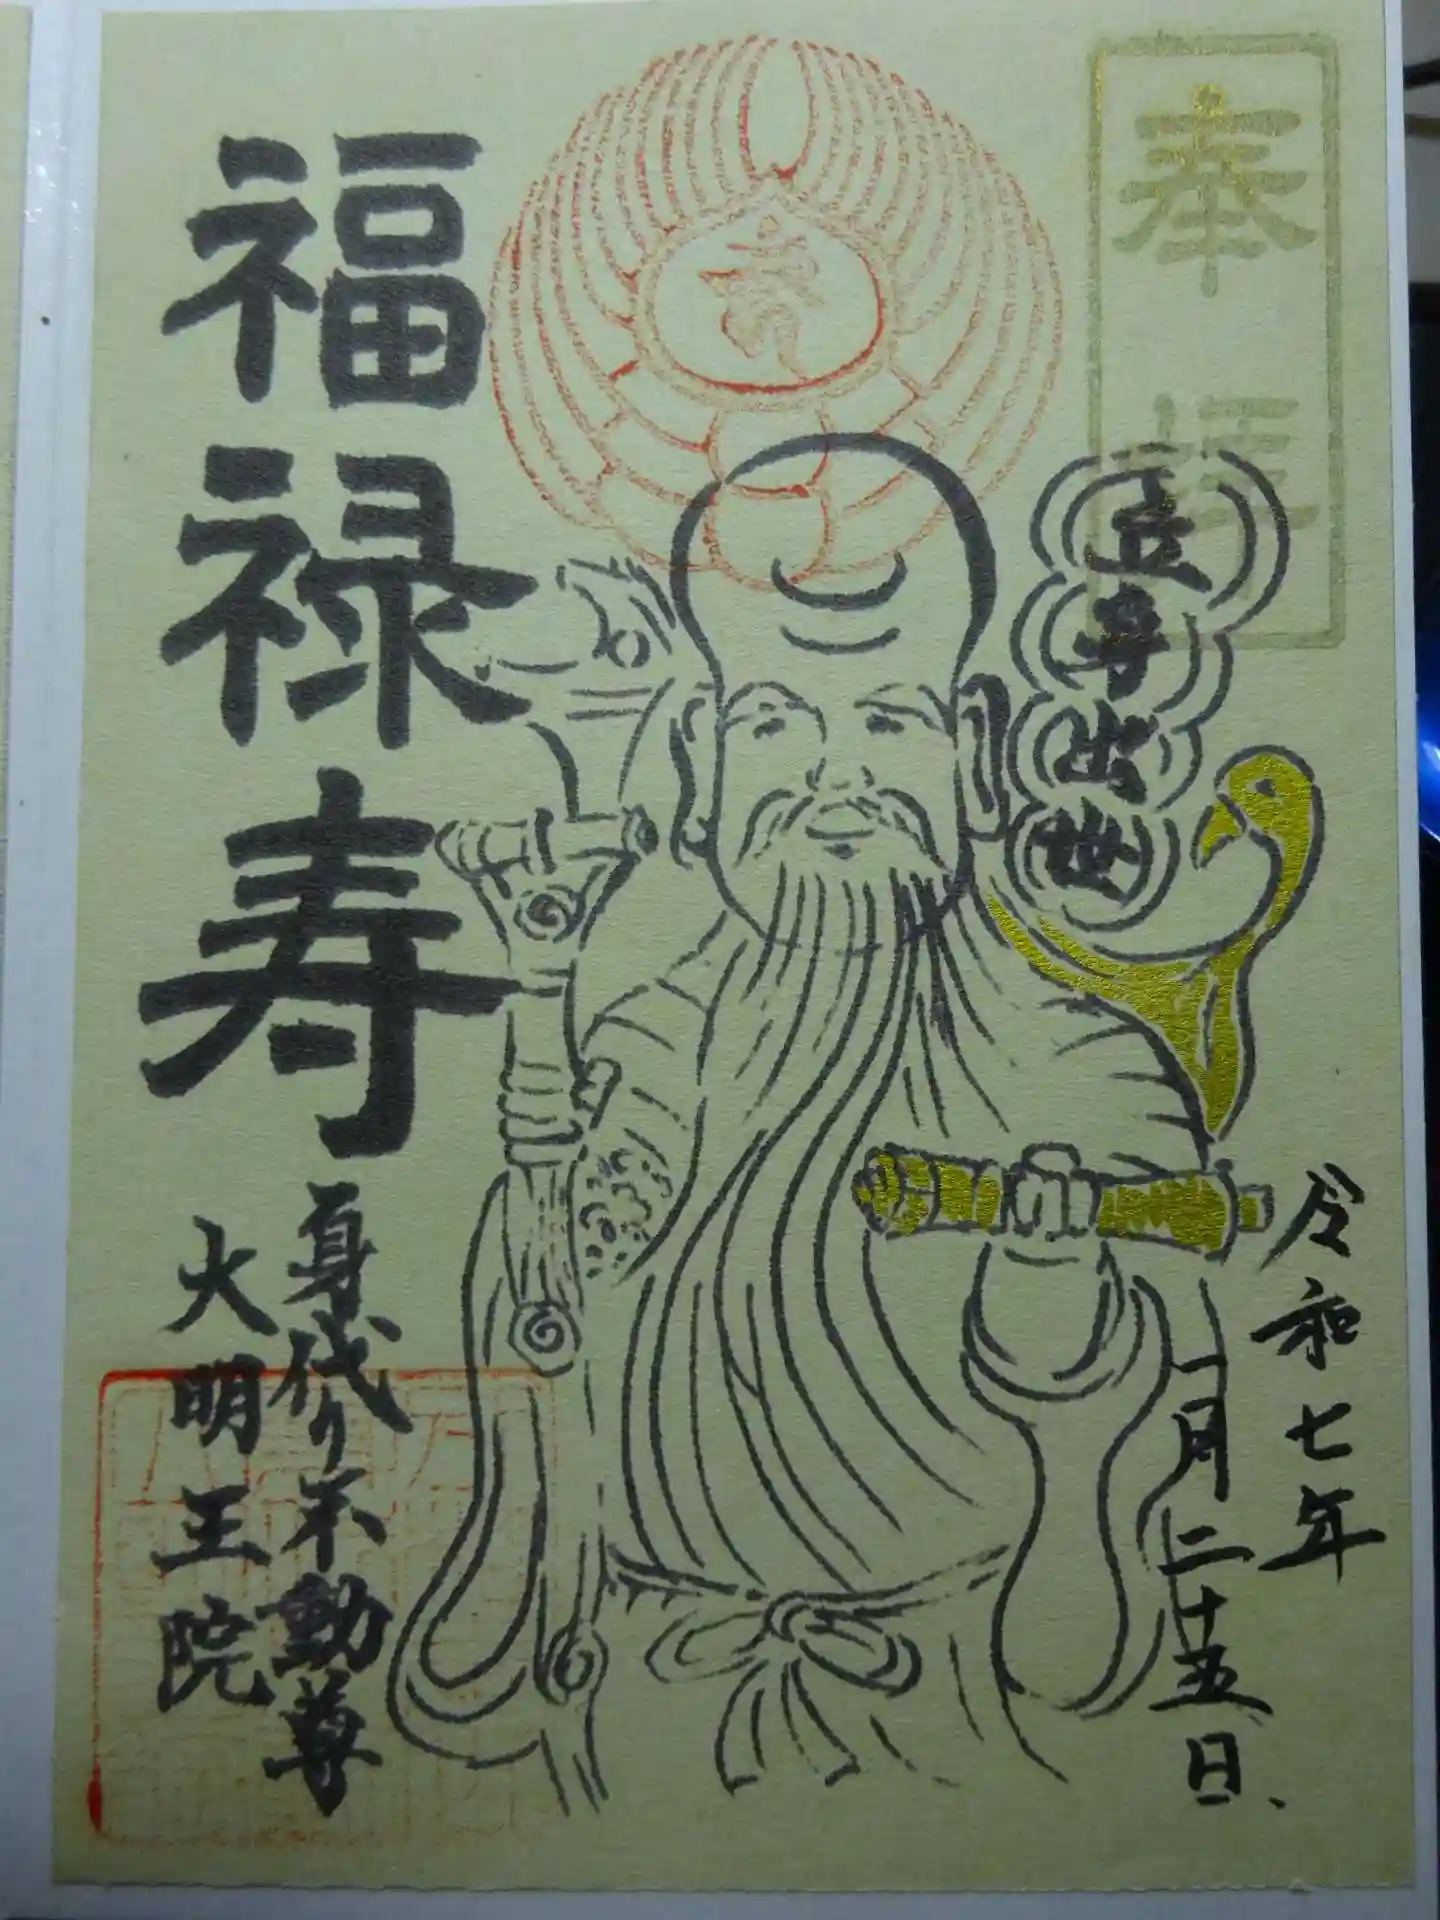 奉拝
立身出世
令和七年
一月二十五日
福禄寿
身代り不動尊
大明王院